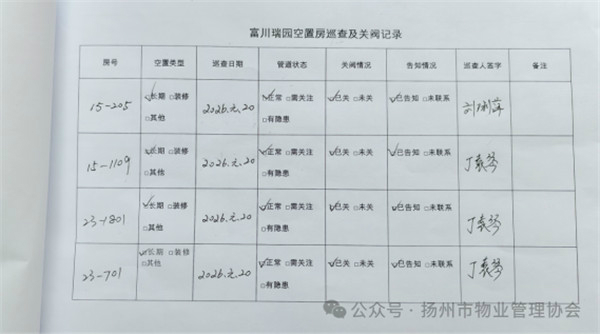 富川瑞园空置房巡查及关阀记录
房号 空置类型 巡查日期 管道状态 关阀情况 告知情况 巡查人签字 备注
15-205 ☑长期 □装修 □其他 2026.元.20 ☑正常 □需关注 □有隐患 ☑已关 □未关 ☑已告知 □未联系
15-1109 ☑长期 □装修 □其他 2026.元.20 ☑正常 □需关注 □有隐患 ☑已关 □未关 ☑已告知 □未联系
23-1801 ☑长期 □装修 □其他 2026.元.20 ☑正常 □需关注 □有隐患 ☑已关 □未关 ☑已告知 □未联系
23-701 ☑长期 □装修 □其他 2026.元.20 ☑正常 □需关注 □有隐患 ☑已关 □未关 ☑已告知 □未联系
公众号·扬州市物业管理协会